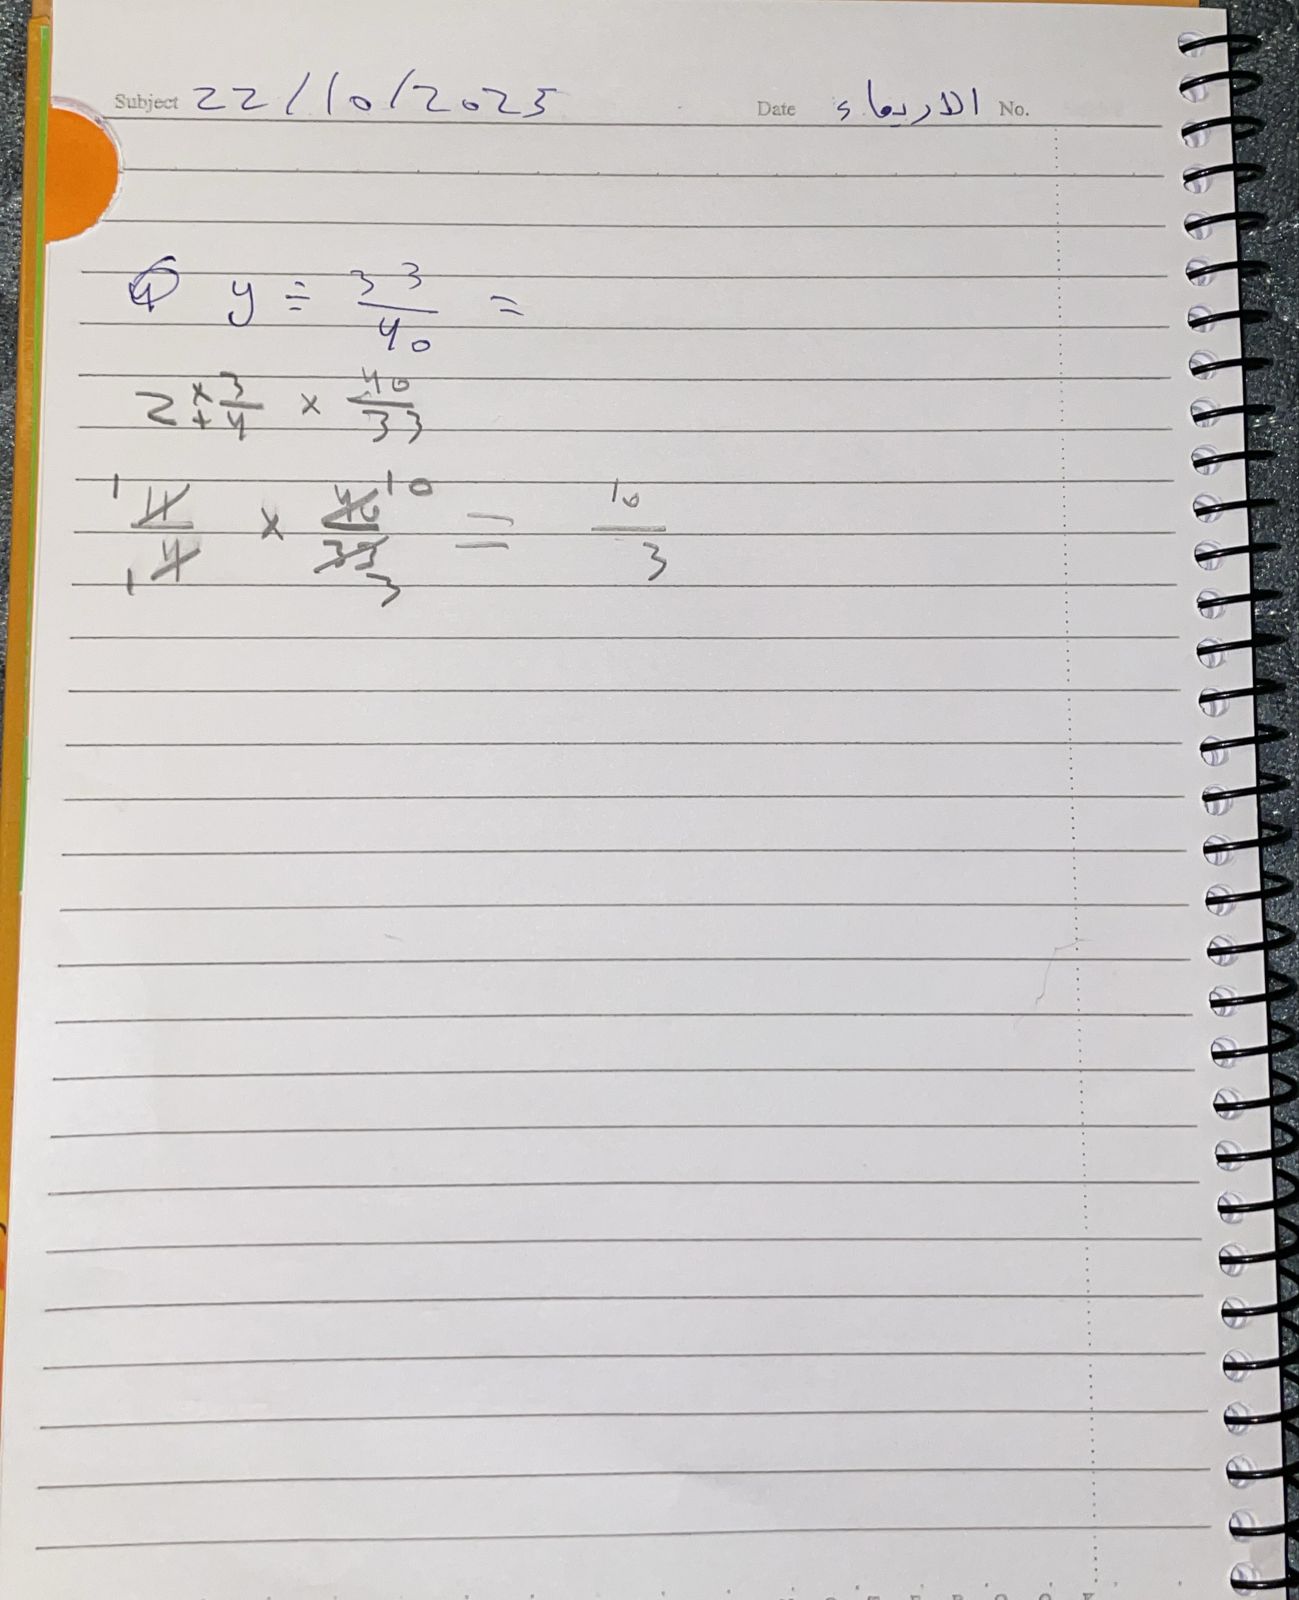 Subject 22/10/2025 Date الاربعاء No.
4 y ÷ 33/40 =
2 × + 3/4 × 40/33
1 11/4 1 × 40/33 10 3 = 10/3